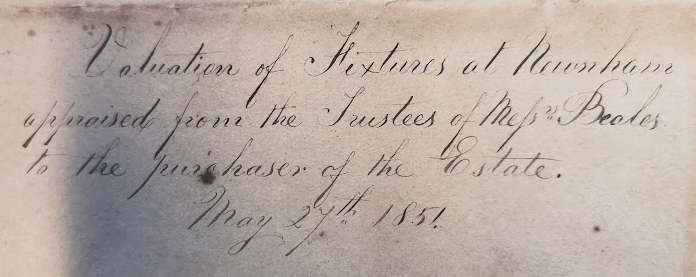 Valuation of Fixtures at Newnham
appraised from the Trustees of Meſsrs Beales
to the purchaser of the Estate.
May 27th 1851.